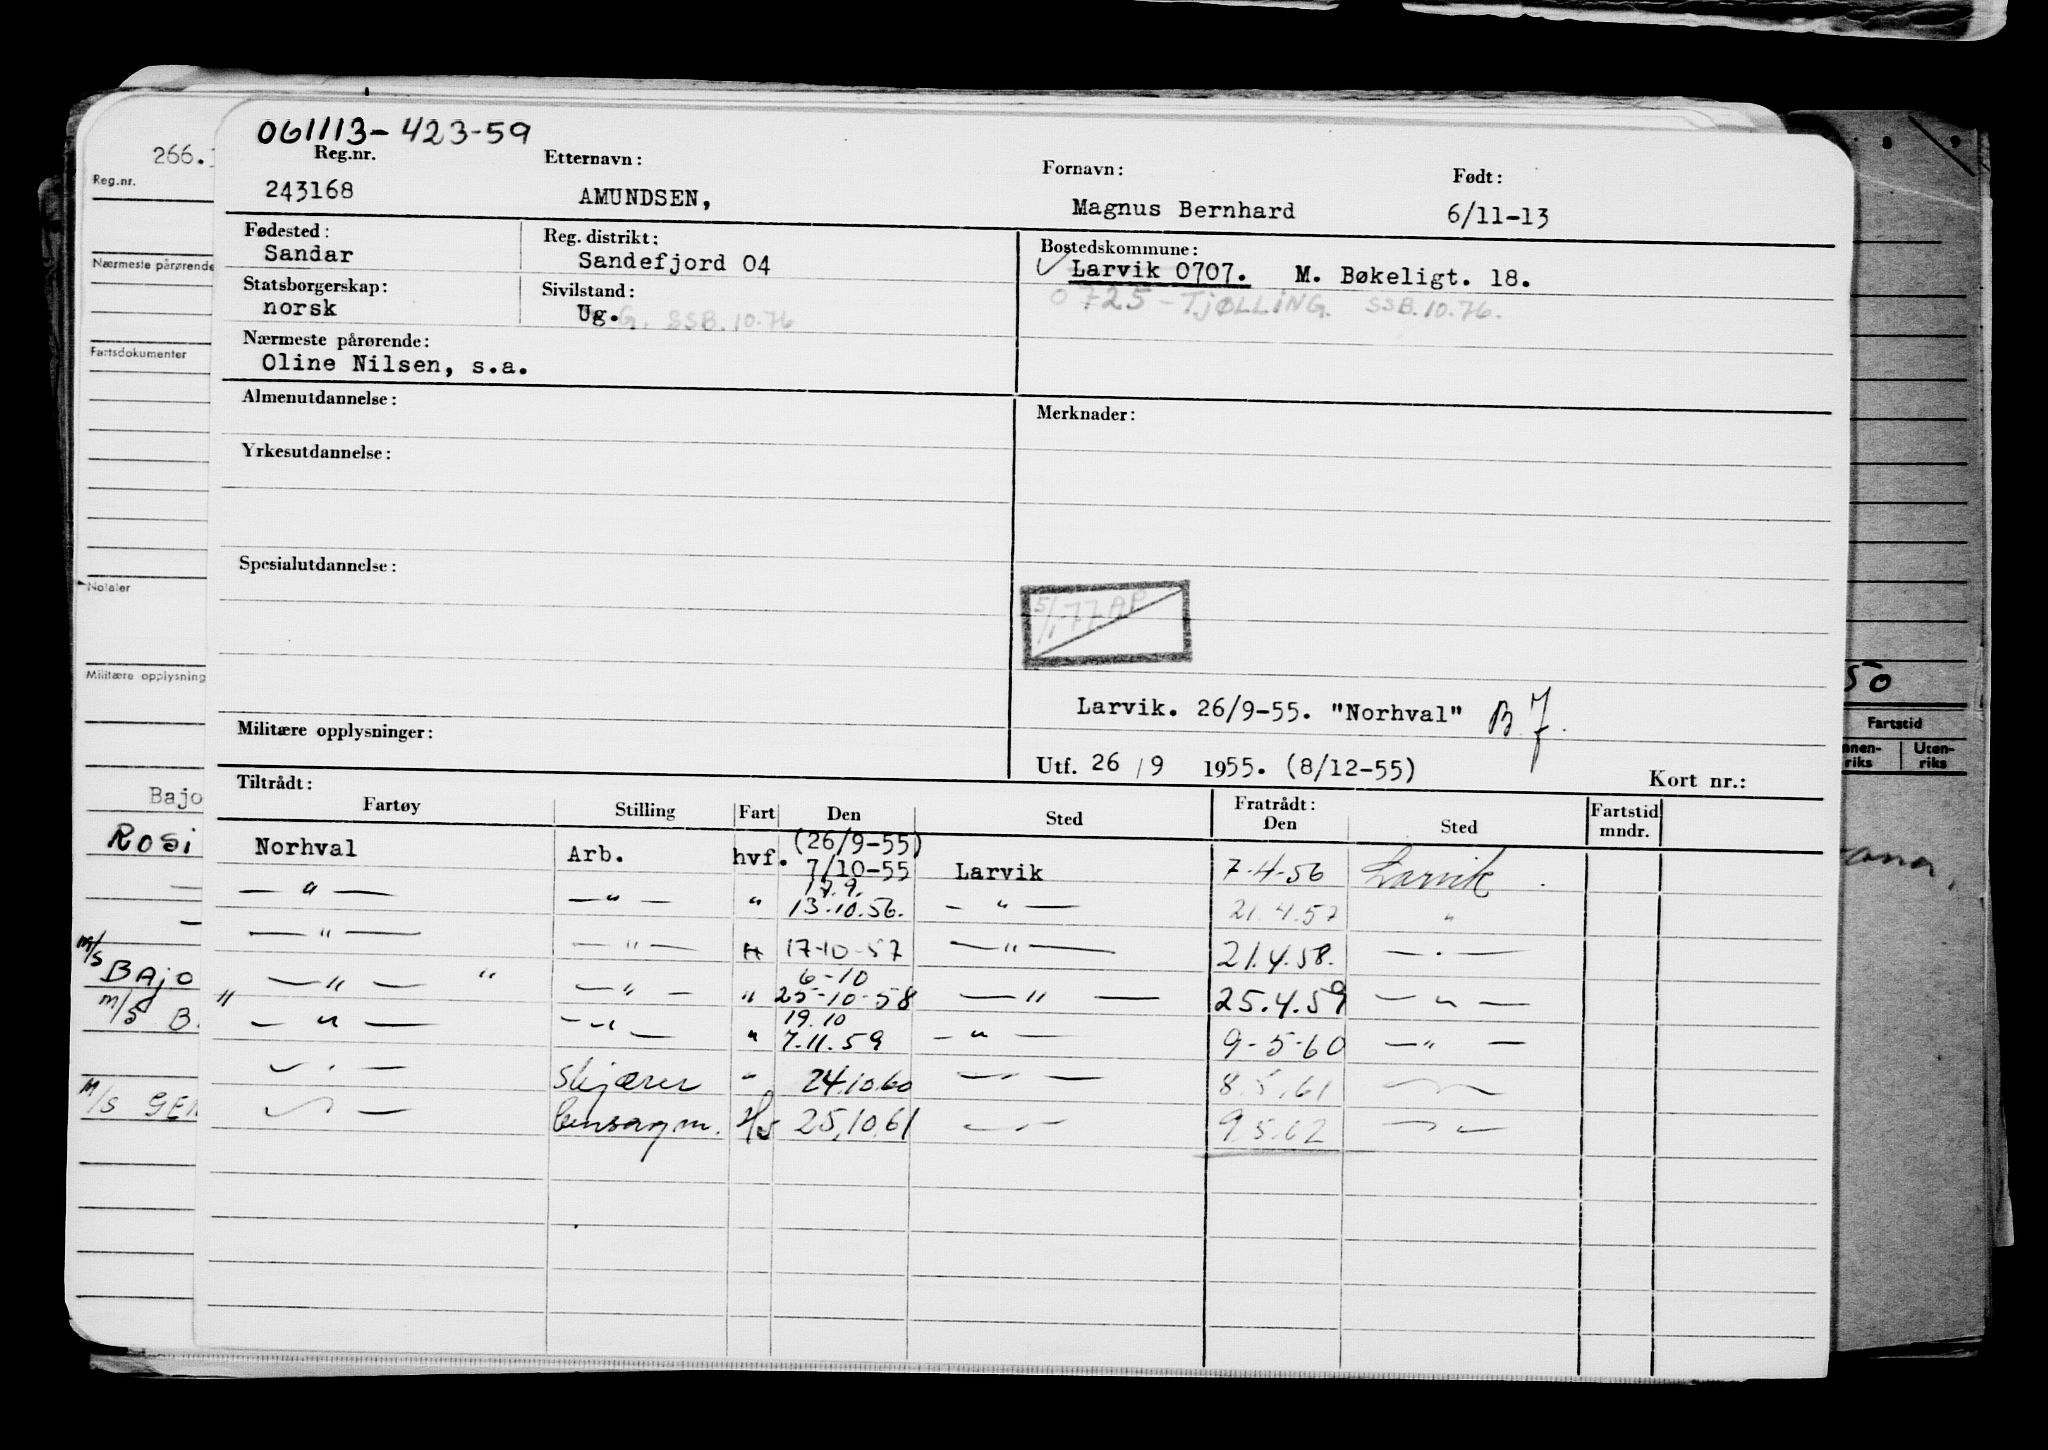 061113-423-59
Reg.nr. Etternavn: Fornavn: Født:
243168 AMUNDSEN, Magnus Bernhard 6/11-13
Fødested: Reg. distrikt: Bostedskommune:
Sandar Sandefjord 04 Larvik 0707. M. Bøkeligt. 18.
Statsborgerskap: Sivilstand: 0725 - TJØLLING. SSB.10.76.
norsk Ug. G. SSB.10.76
Nærmeste pårørende:
Oline Nilsen, s.a.
Almenutdannelse: Merknader:
Yrkesutdannelse:
Spesialutdannelse:
5/1 77 AP
Larvik. 26/9-55. "Norhval" B 7.
Militære opplysninger:
Utf. 26/9 1955. (8/12-55) Kort nr.:
Tiltrådt: Fratrådt:
Fartøy Stilling Fart Den Sted Den Sted Fartstid mndr.
(26/9-55)
Norhval Arb. hvf. 7/10-55 Larvik 7-4-56 Larvik
17.9.
— " — — " — " 13.10.56. — " — 21.4.57 "
— " — — " — " 17-10-57 — " — 21.4.58. — " —
6-10
— " — " — " — " 25-10-58 — " — 25.4.59 — " —
19.10
" — " — — " — " 7.11.59 — " — 9-5-60 — " —
— " — Skjærer " 24.10.60 — " — 8.5.61 — " —
— " — bensagm. Hv 25.10.61 — " — 9.5.62 — " —
266.
Reg.nr.
Nærmeste pårørende
Fartsdokumenter
Notater
Militære opplysning
Bajo
Rosi
M/S BAJO
M/S B.
M/S GEN
50
Fartstid
nnen-riks Uten-riks